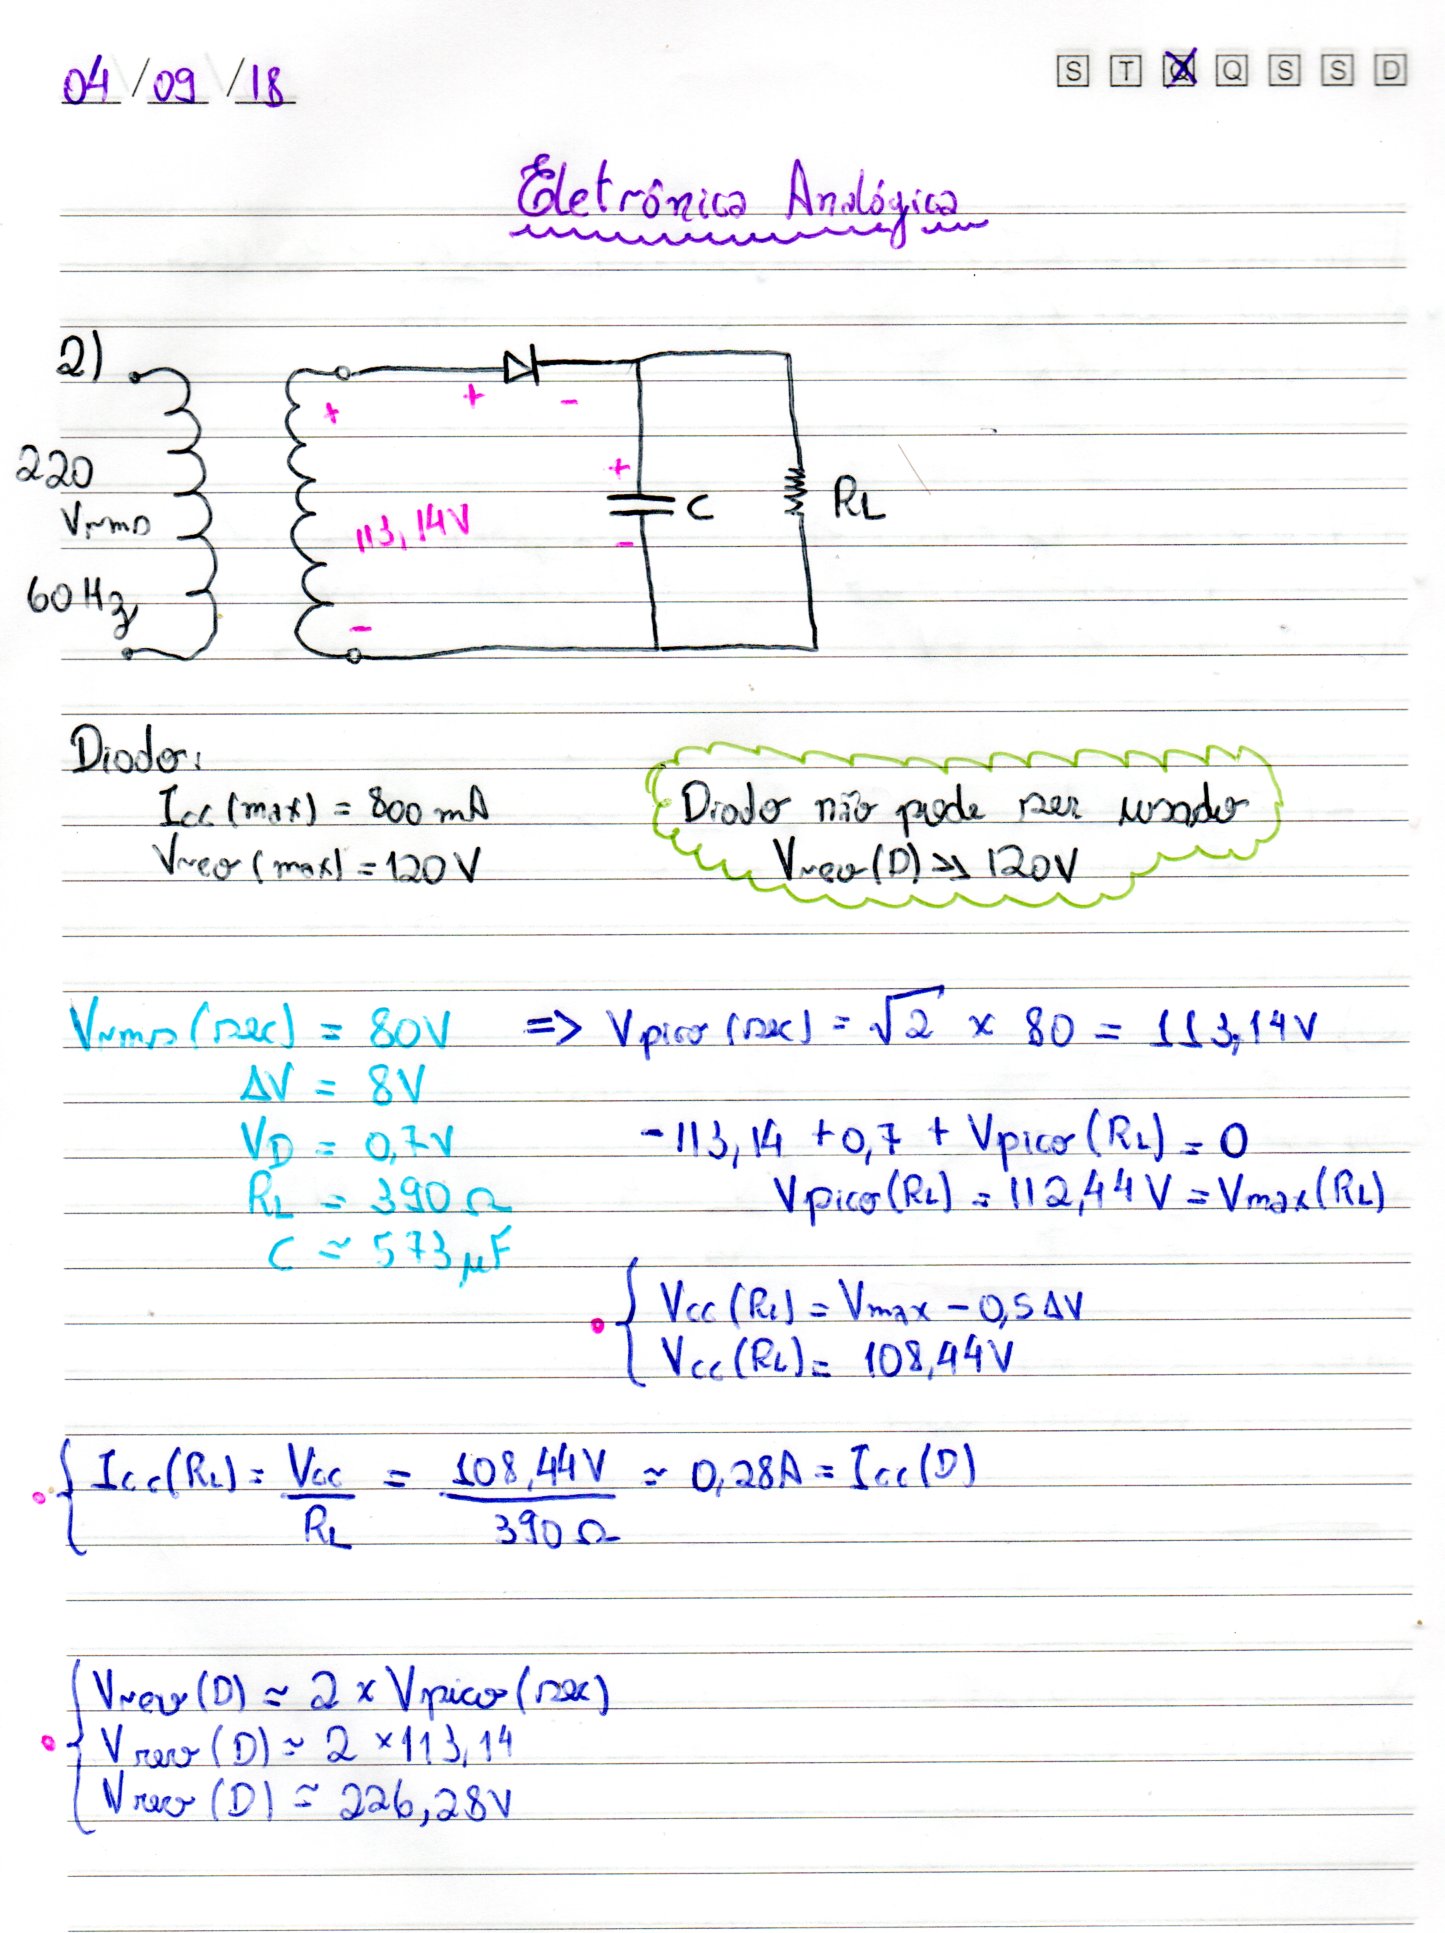 04/09/18
S T Q Q S S D
Eletrônica Analógica
2)
220
Vrms
60Hz
+
-
113,14V
+ -
+
-
C
RL
Diodo:
Icc(max) = 800 mA
Vrev(max) = 120V
Diodo não pode ser usado
Vrev(D) >> 120V
Vrms(sec) = 80V => Vpico(sec) = √2 x 80 = 113,14V
ΔV = 8V
VD = 0,7V
RL = 390Ω
C ≃ 573µF
-113,14 + 0,7 + Vpico(RL) = 0
Vpico(RL) = 112,44V = Vmax(RL)
Vcc(RL) = Vmax - 0,5ΔV
Vcc(RL) = 108,44V
Icc(RL) = Vcc/RL = 108,44V/390Ω ≃ 0,28A = Icc(D)
Vrev(D) ≃ 2 x Vpico(sec)
Vrev(D) ≃ 2 x 113,14
Vrev(D) ≃ 226,28V